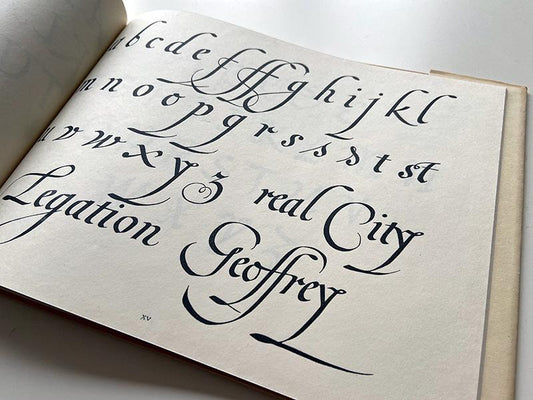 a b c d e f ff g h i j k l
m n o o p q r s s s t st
u v w x y z real City
Legation Geoffrey
xv